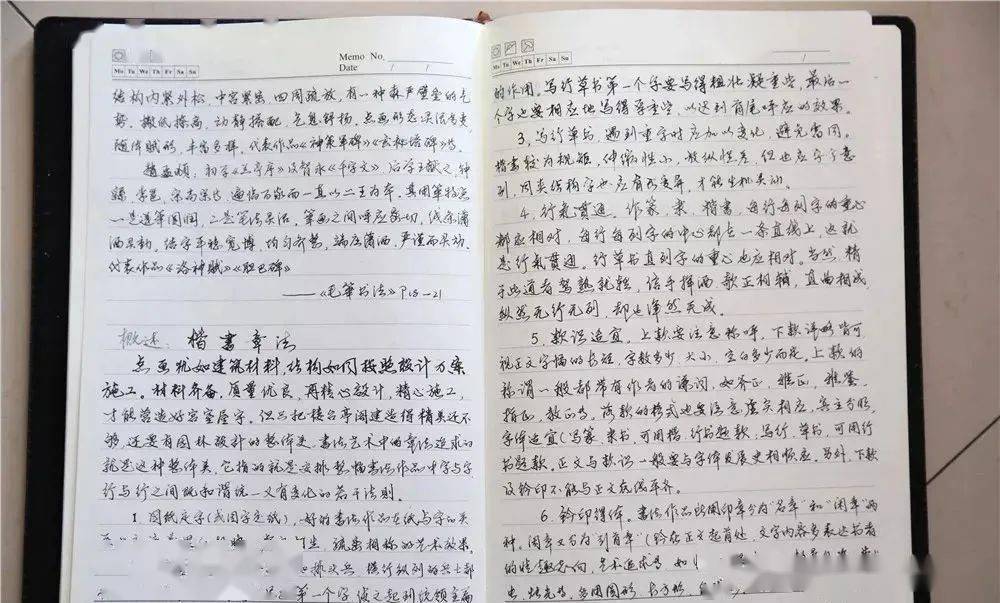 Memo No.
Date / /
Mo Tu We Th Fr Sa Su
结构内紧外松,中宫紧密,四周疏放,有一种森严壁垒的气
势。撇低捺高,动静搭配,气息舒扬。点画形态灵活多变,
随体赋形,丰富多样,代表作品《神策军碑》《玄秘塔碑》等。
赵孟頫,初学《兰亭序》及智永《千字文》,后学王献之、钟
繇、李邕、宋高宗等,遍临百家而一直以二王为本,其用笔特点
一是道笔圆润,二是笔法灵活,笔画之间呼应密切,优雅潇
洒灵动,结字平稳宽博,均匀齐整,端庄潇洒,严谨而灵动,
代表作品《洛神赋》《胆巴碑》
——《毛笔书法》P18-21
概述:楷書章法
点画犹如建筑材料,结构如同按照设计方案
施工。材料齐备,质量优良,再核心设计,精心施工,
才能营造好宫室屋宇。但只把楼台亭阁建造得精美还不
够,还要有园林设计的整体美。书法艺术中的章法追求的
就是这种整体美,它指的就是安排整幅书法作品中字与字、
行与行之间既和谐统一又有变化的若干法则。
1. 因纸定字(或因字定纸),好的书法作品在纸与字的关
疏密相称的艺术效果。
横行纵列的共七部
第一个字彼之起到统领全篇
Mo Tu We Th Fr Sa Su
的作用。写行草书第一个字要写得粗壮凝重些,最后一
个字也要相应地写得厚重些,以达到首尾呼应的效果。
3. 写行草书,遇到重字时应加以变化,避免雷同。
楷書较为规矩,伸缩性小,放纵性差,但也应字字意
别,同类结构字也应有所差异,才能生机灵动。
4. 行氣贯通。作篆、隶、楷書,每行每列字的重心
都应相对,每行每列字的中心都在一条直线上,这就
是行氣贯通。行草书直列字的重心也应相对。当然,精
于此道者驾熟就轻,信手挥洒,欹正相辅,直曲相成,
纵然无行无列,却也浑然完成。
5. 款识适宜。上款要注意称呼,下款详略皆可
视正文字幅的长短,字数多少、大小,空白多少而定。上款的
称谓一般都带有作者的谦词,如斧正、雅正、雅鉴、
指正、教正等。落款的格式也要注意虚实相应,宾主分明,
字体适宜(写篆、隶书,可用楷、行书题款,写行、草书,可用行
书题款。正文与款识一般要与字体发展史相顺应。另外,下款
及钤印不能与正文底线平齐。
6. 钤印得体。書法作品所用印章分为“名章”和“闲章”两
种。闲章又分为“引首章”(钤在正文起首处,文字内容多表达书者
的性趣志向、艺术追求等,如
多用圆形、长方形、